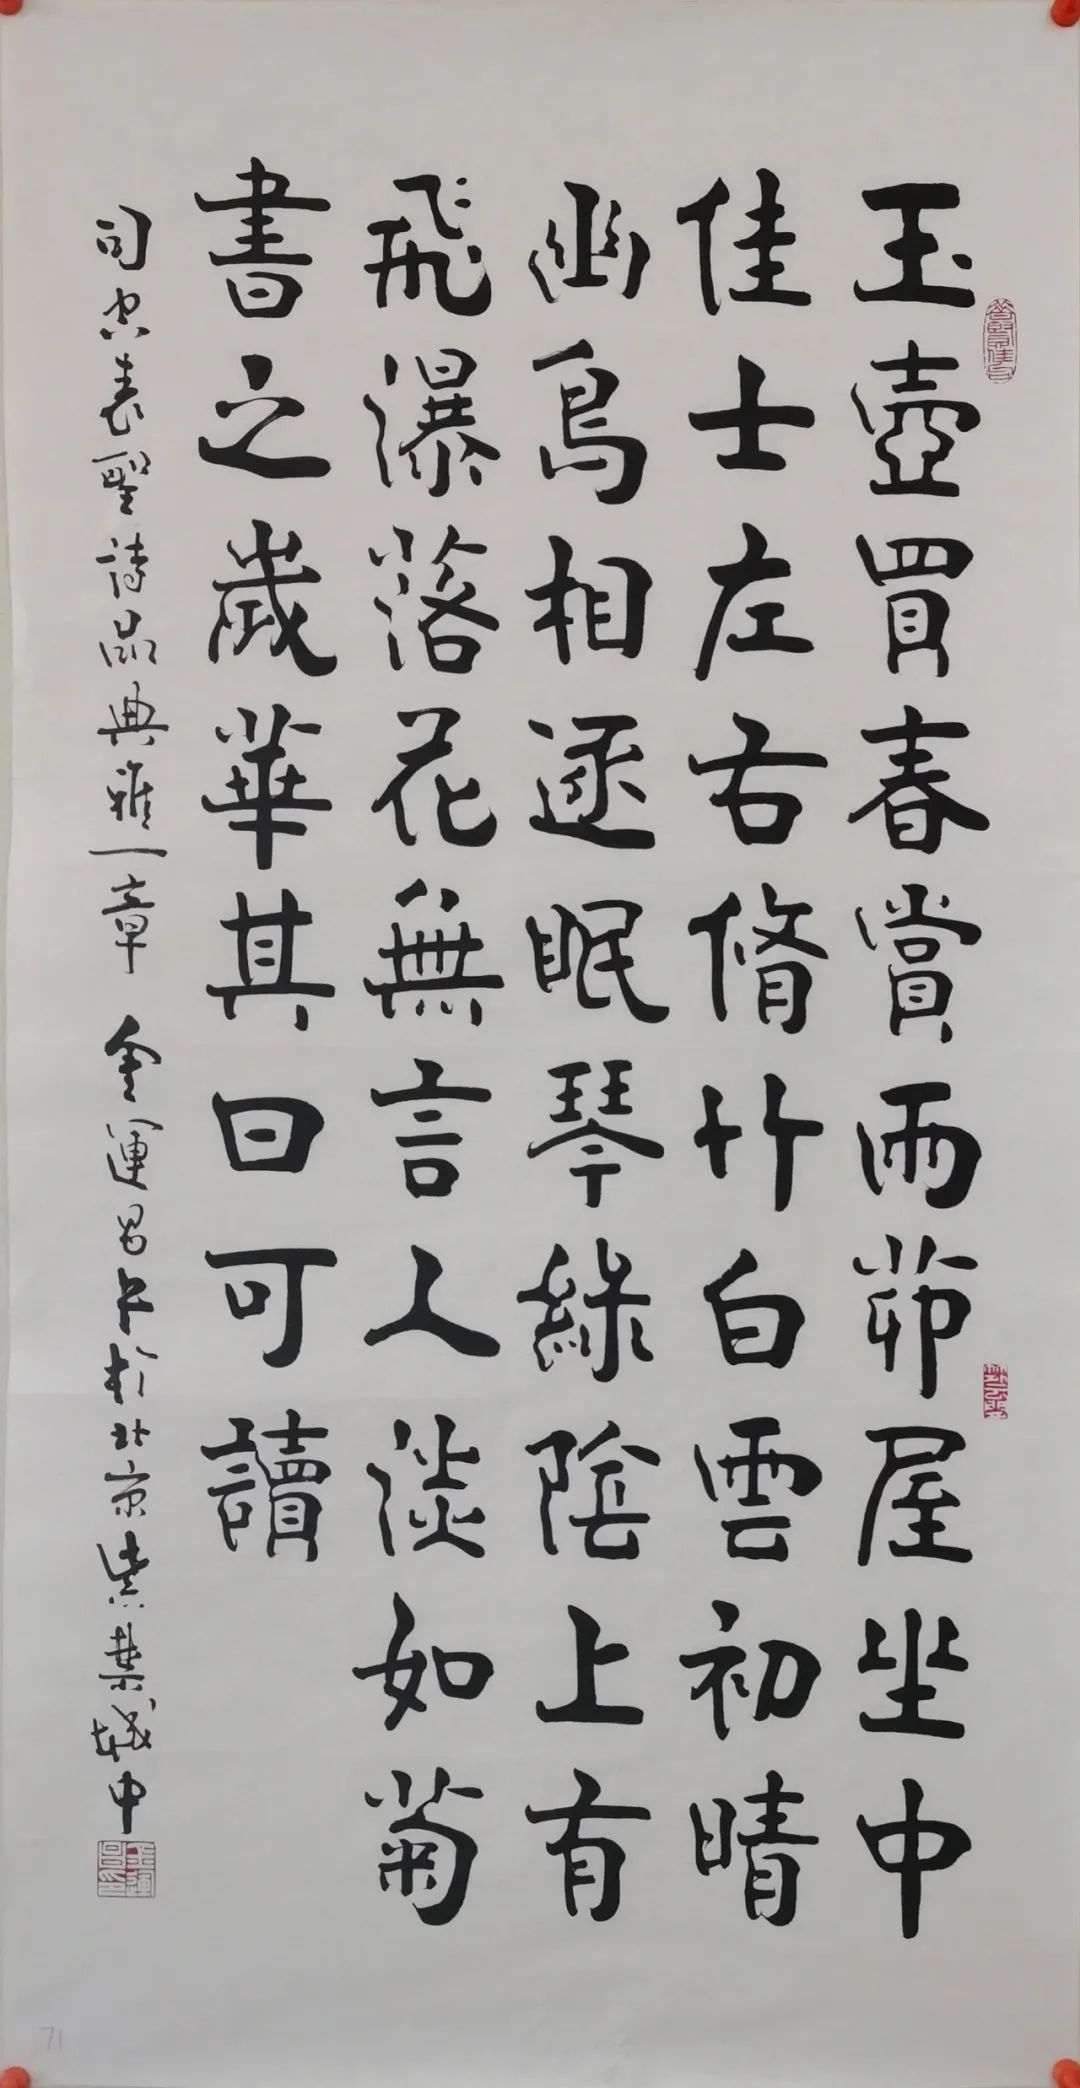 玉壺買春賞雨茆屋坐中
佳士左右脩竹白雲初晴
幽鳥相逐眠琴綠陰上有
飛瀑落花無言人淡如菊
書之歲華其曰可讀
司空表聖詩品典雅一章 金運昌書於北京紫禁城中
71